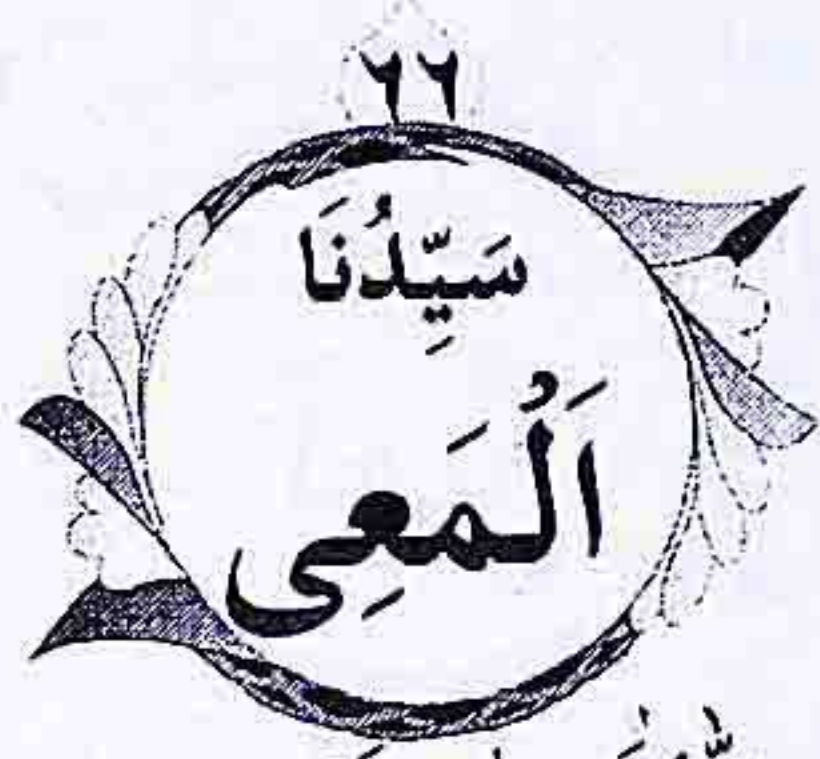 ٦٦
سَيِّدُنَا
اَلْمَعِى